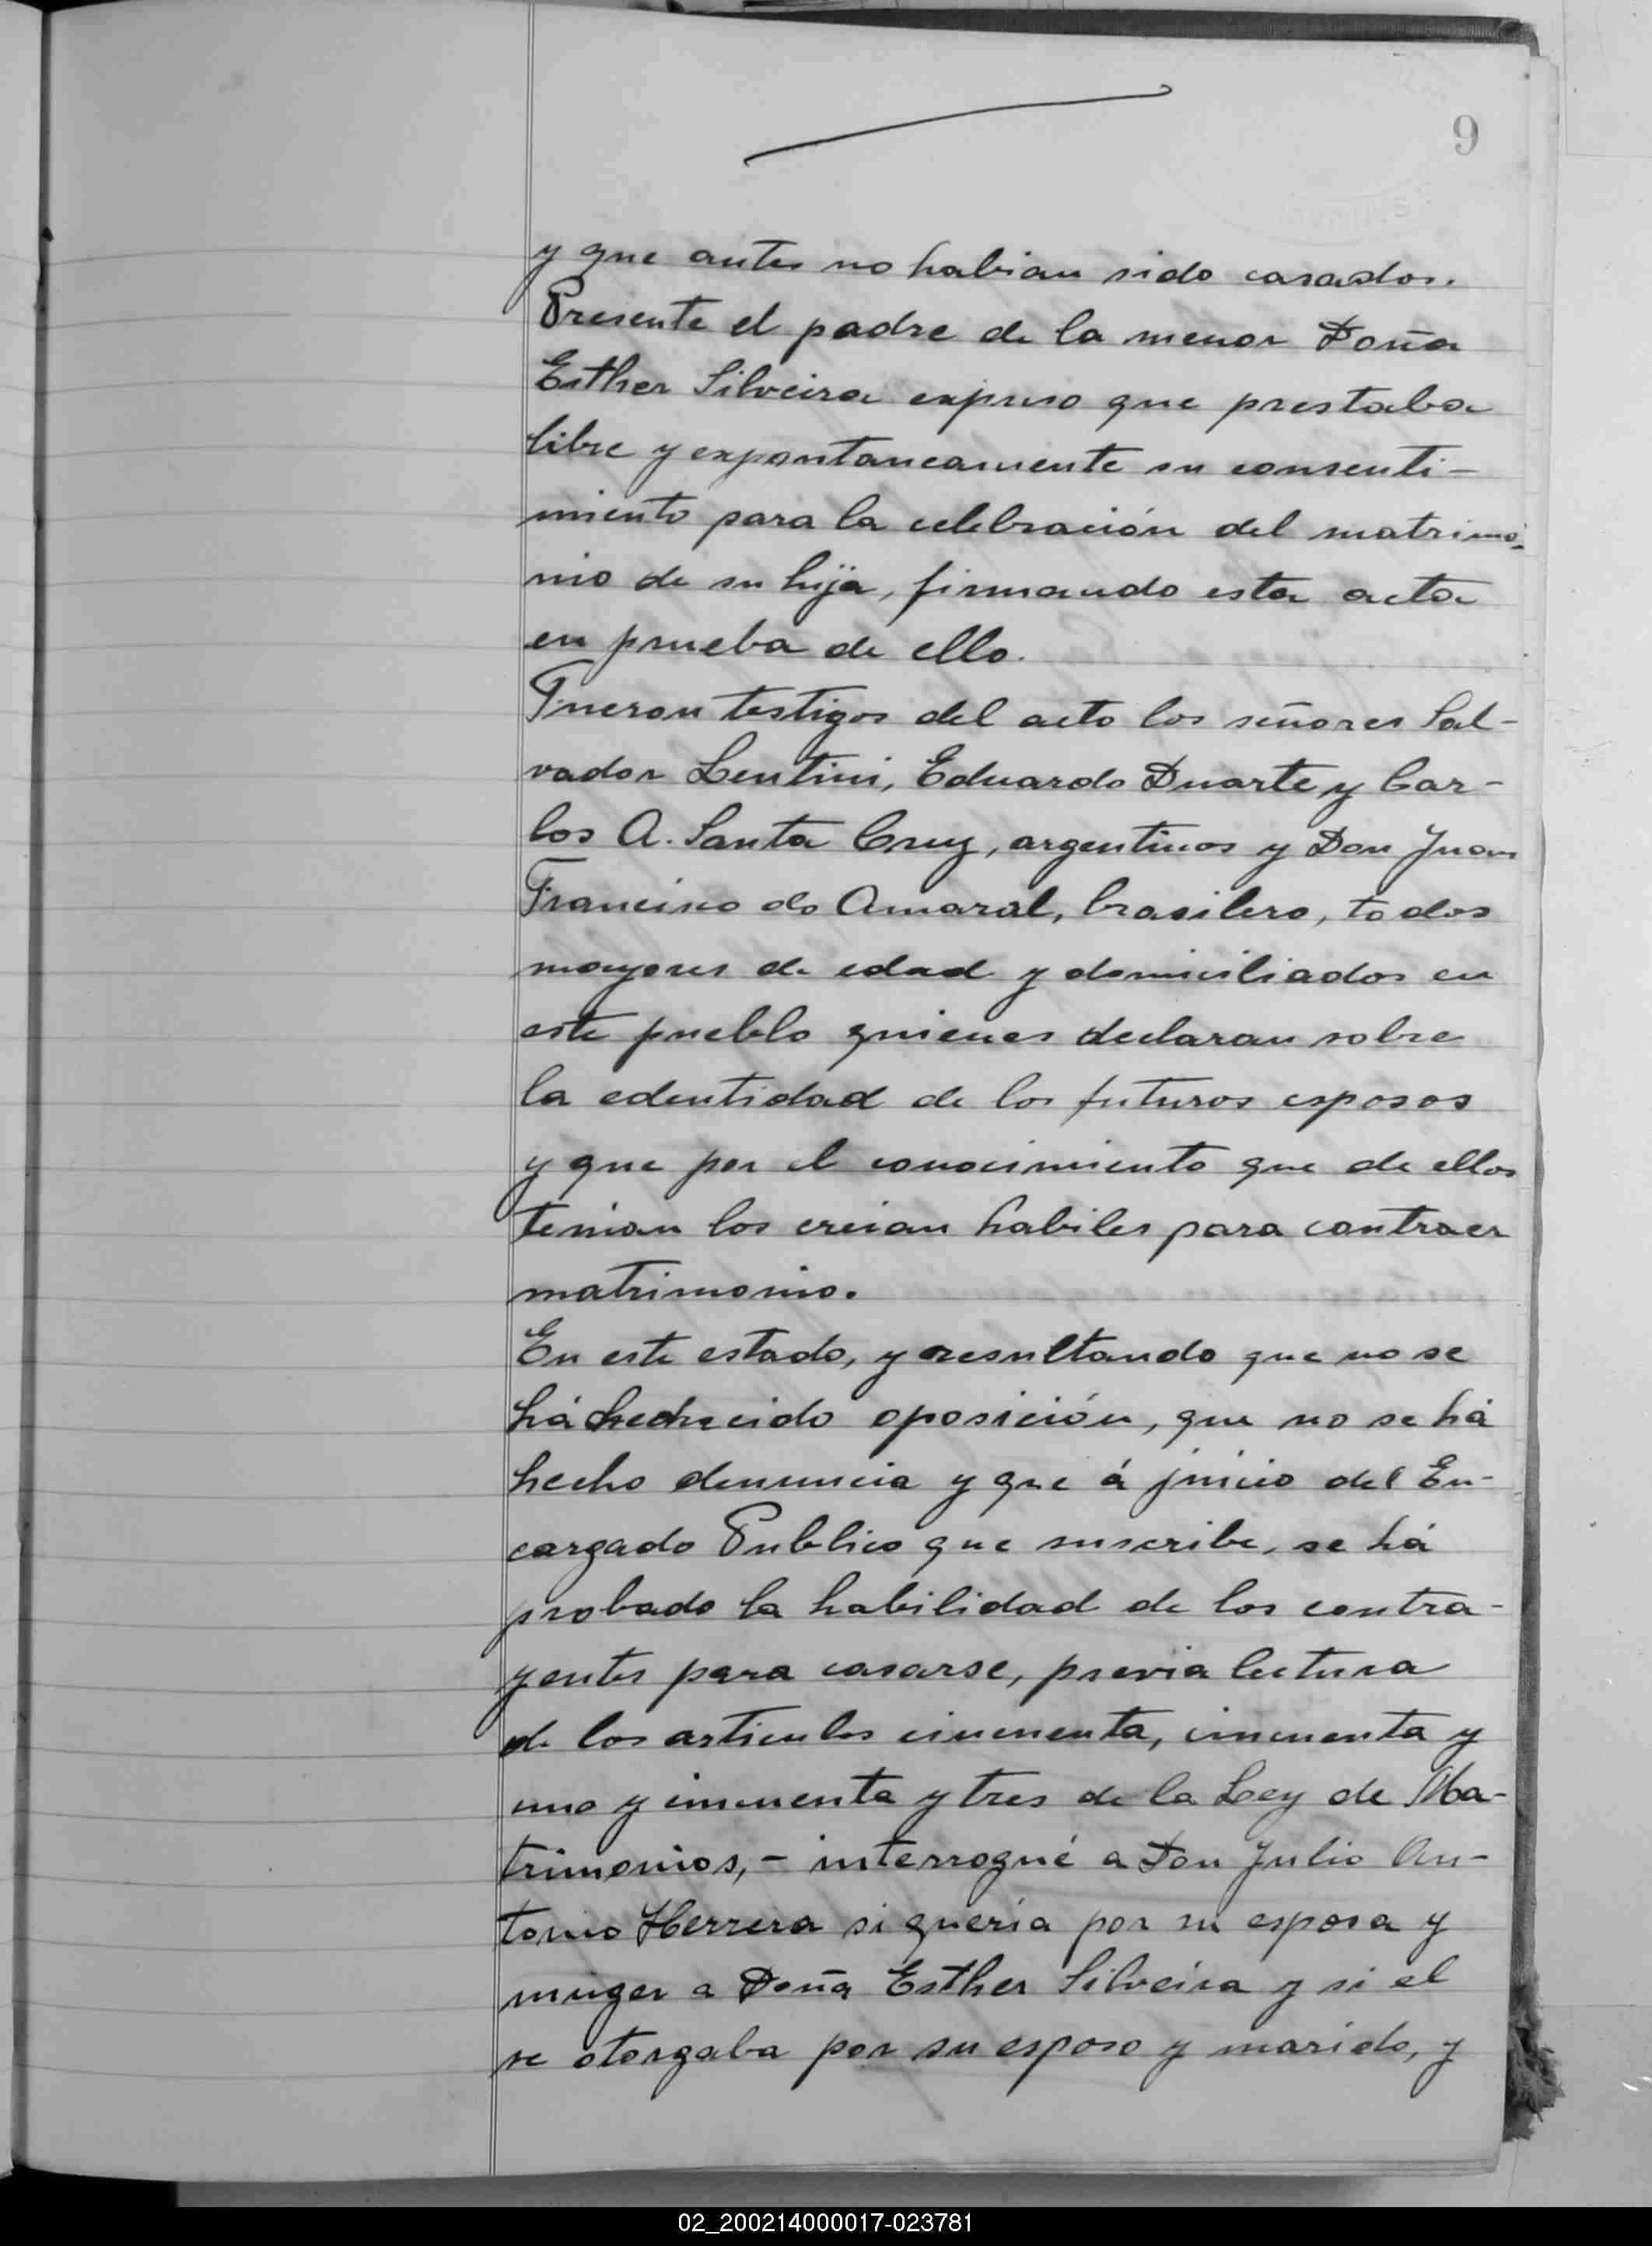 9
y que antes no habian sido casados.
Presente el padre de la menor Doña
Esther Silveira expuso que prestaba
libre y expontaneamente su consenti-
miento para la celebración del matrimo-
nio de su hija, firmando esta acta
en prueba de ello.
Fueron testigos del acto los señores Sal-
vador Lentini, Eduardo Duarte y Car-
los A. Santa Cruz, argentinos y Don Juan
Francisco do Amaral, brasilero, todos
mayores de edad y domiciliados en
este pueblo quienes declaran sobre
la edentidad de los futuros esposos
y que por el conocimiento que de ellos
tenian los creian habiles para contraer
matrimonio.
En este estado, y resultando que no se
há deducido oposición, que no se há
hecho denuncia y que á juicio del En-
cargado Publico que suscribe, se há
probado la habilidad de los contra-
yentes para casarse, previa lectura
de los articulos cincuenta, cincuenta y
uno y cincuenta y tres de la Ley de Ma-
trimonios, - interrogué a Don Julio An-
tonio Herrera si queria por su esposa y
muger a Doña Esther Silveira y si el
se otorgaba por su esposo y marido, y
02_200214000017-023781